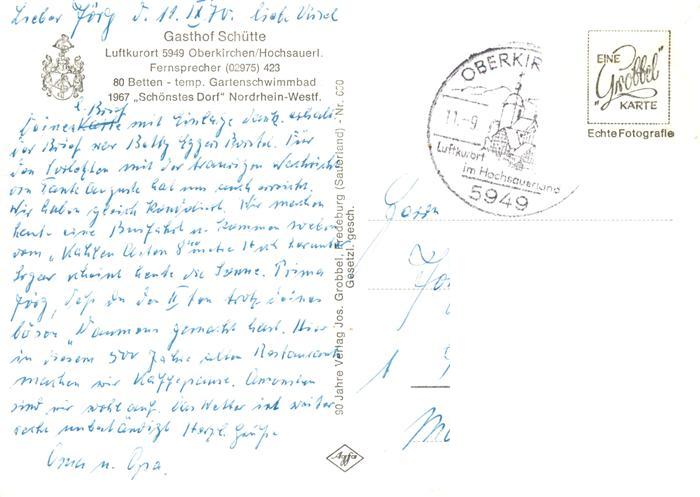 Lieber Jörg d. 11. IX 70. liebe Ursel
Gasthof Schütte
Luftkurort 5949 Oberkirchen/Hochsauerl.
Fernsprecher (02975) 423
80 Betten - temp. Gartenschwimmbad
1967 „Schönstes Dorf" Nordrhein-Westf.
l. Brief
Deinen Karte mit Einlage dank. erhalt.
Der Brief war
den mit der traurigen Nachricht
von Tante Auguste hat uns auch erreicht.
Wir haben gleich kondoliert. Wir machen
heute eine Busfahrt u. kommen
vom „Kahlen Asten 8 hundert
Sogar scheint heute die Sonne. Prima
Jörg, daß du den II ten trotz deines
bösen Daumens gemacht hast. Hier
in diesem 500 Jahre alten Restaurant
machen wir Kaffeepause. Ansonsten
sind wir wohlauf. Das Wetter ist weiter
recht unbeständig. Herzl. Grüße
Oma u. Opa.
90 Jahre Verlag Jos. Grobbel, Fredeburg (Sauerland) - Nr. 600
Gesetzl. gesch.
Agfa
OBERKIR
11.-9
Luftkurort
im Hochsauerland
5949
EINE
"Grobbel"
KARTE
Echte Fotografie